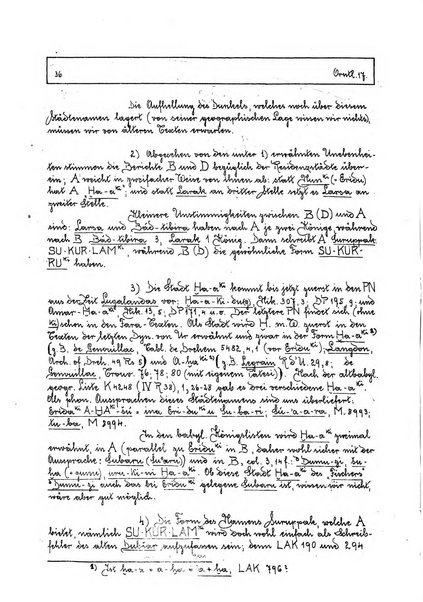 36 Orntl. 17.
Die Aufhellung des Dunkels, welches noch über diesem
Städtenamen lagert (von seiner geographischen Lage wissen wir nichts)
müssen wir von älteren Texten erwarten.
2) Abgesehen von den unter 1) erwähnten Unebenhei-
ten stimmen die Berichte B und D bezüglich der Residenzstädte über-
ein; A weicht in zweifacher Weise von ihnen ab: statt Nun ki (= Eridu)
hat A Ḫa-a ki; und statt Larak an dritter Stelle setzt es Larsa an
zweiter Stelle.
Kleinere Unstimmigkeiten zwischen B (D) und A
sind: Larsa und Bàd-tibira haben nach A je zwei Könige, während
nach B Bàd-tibira 3, Larak 1 König. Dann schreibt A Suruppak
SU-KUR-LAM ki, während B (D) die gewöhnliche Form SU-KUR-
RU ki haben.
3) Die Stadt Ḫa-a ki kommt bis jetzt zuerst in den PN
aus der Zeit Lugalandas vor: Ḫa-a-ki-dug, Nik. 307, 3; DP 195, 9; und
Amar-Ḫa-a ki Nik. 13, 5; DP 171, 4 u. o. Der letztere PN findet sich (ohne
ki) schon in den Fara-Texten. Als Stadt wird H. m. W. zuerst in den
Texten der letzten Dyn. von Ur erwähnt und zwar in der Form Ḫa-a ki
(z. B. de Genouillac, Tabl. de Drehem 5482, 4, 1 (vor Eridu ki); Langdon,
Arch. of Dreh. 49 Rs 5) und A-ḫa ki (z. B. Legrain, R d U. 29, 8; de
Genouillac, Trouv. 76; 78; 80 (mit eigenem Patesi)). Nach der altbabyl.
geogr. Liste K 4248 (IV R 38), 1, 26-28 gab es drei verschiedene Ḫa-a ki.
Als phon. Aussprachen dieses Städtenamens sind uns überliefert:
tu-ba, M 2994.
In den babyl. Königslisten wird Ḫa-a ki zweimal
erwähnt, in A (parallel zu Eridu in B, daher wohl sicher mit der
Aussprache: Subaru (su'aru)) und in B, col. 3, 14 f: "Dumu-zi, šu-
Ob diese Stadt Ḫa-a ki des Fischers
Dumu-zi auch das bei Eridu ki gelegene Subaru ist, wissen wir nicht,
wäre aber gut möglich.
4) Die Form des Namens Suruppak, welche A
bietet, nämlich SU-KUR-LAM ki wird doch wohl einfach als Schreib-
fehler des alten aufzufassen sein; denn LAK 190 und 294
1) Ist ḫa-a = a-ḫa = a+ḫa, LAK 796?